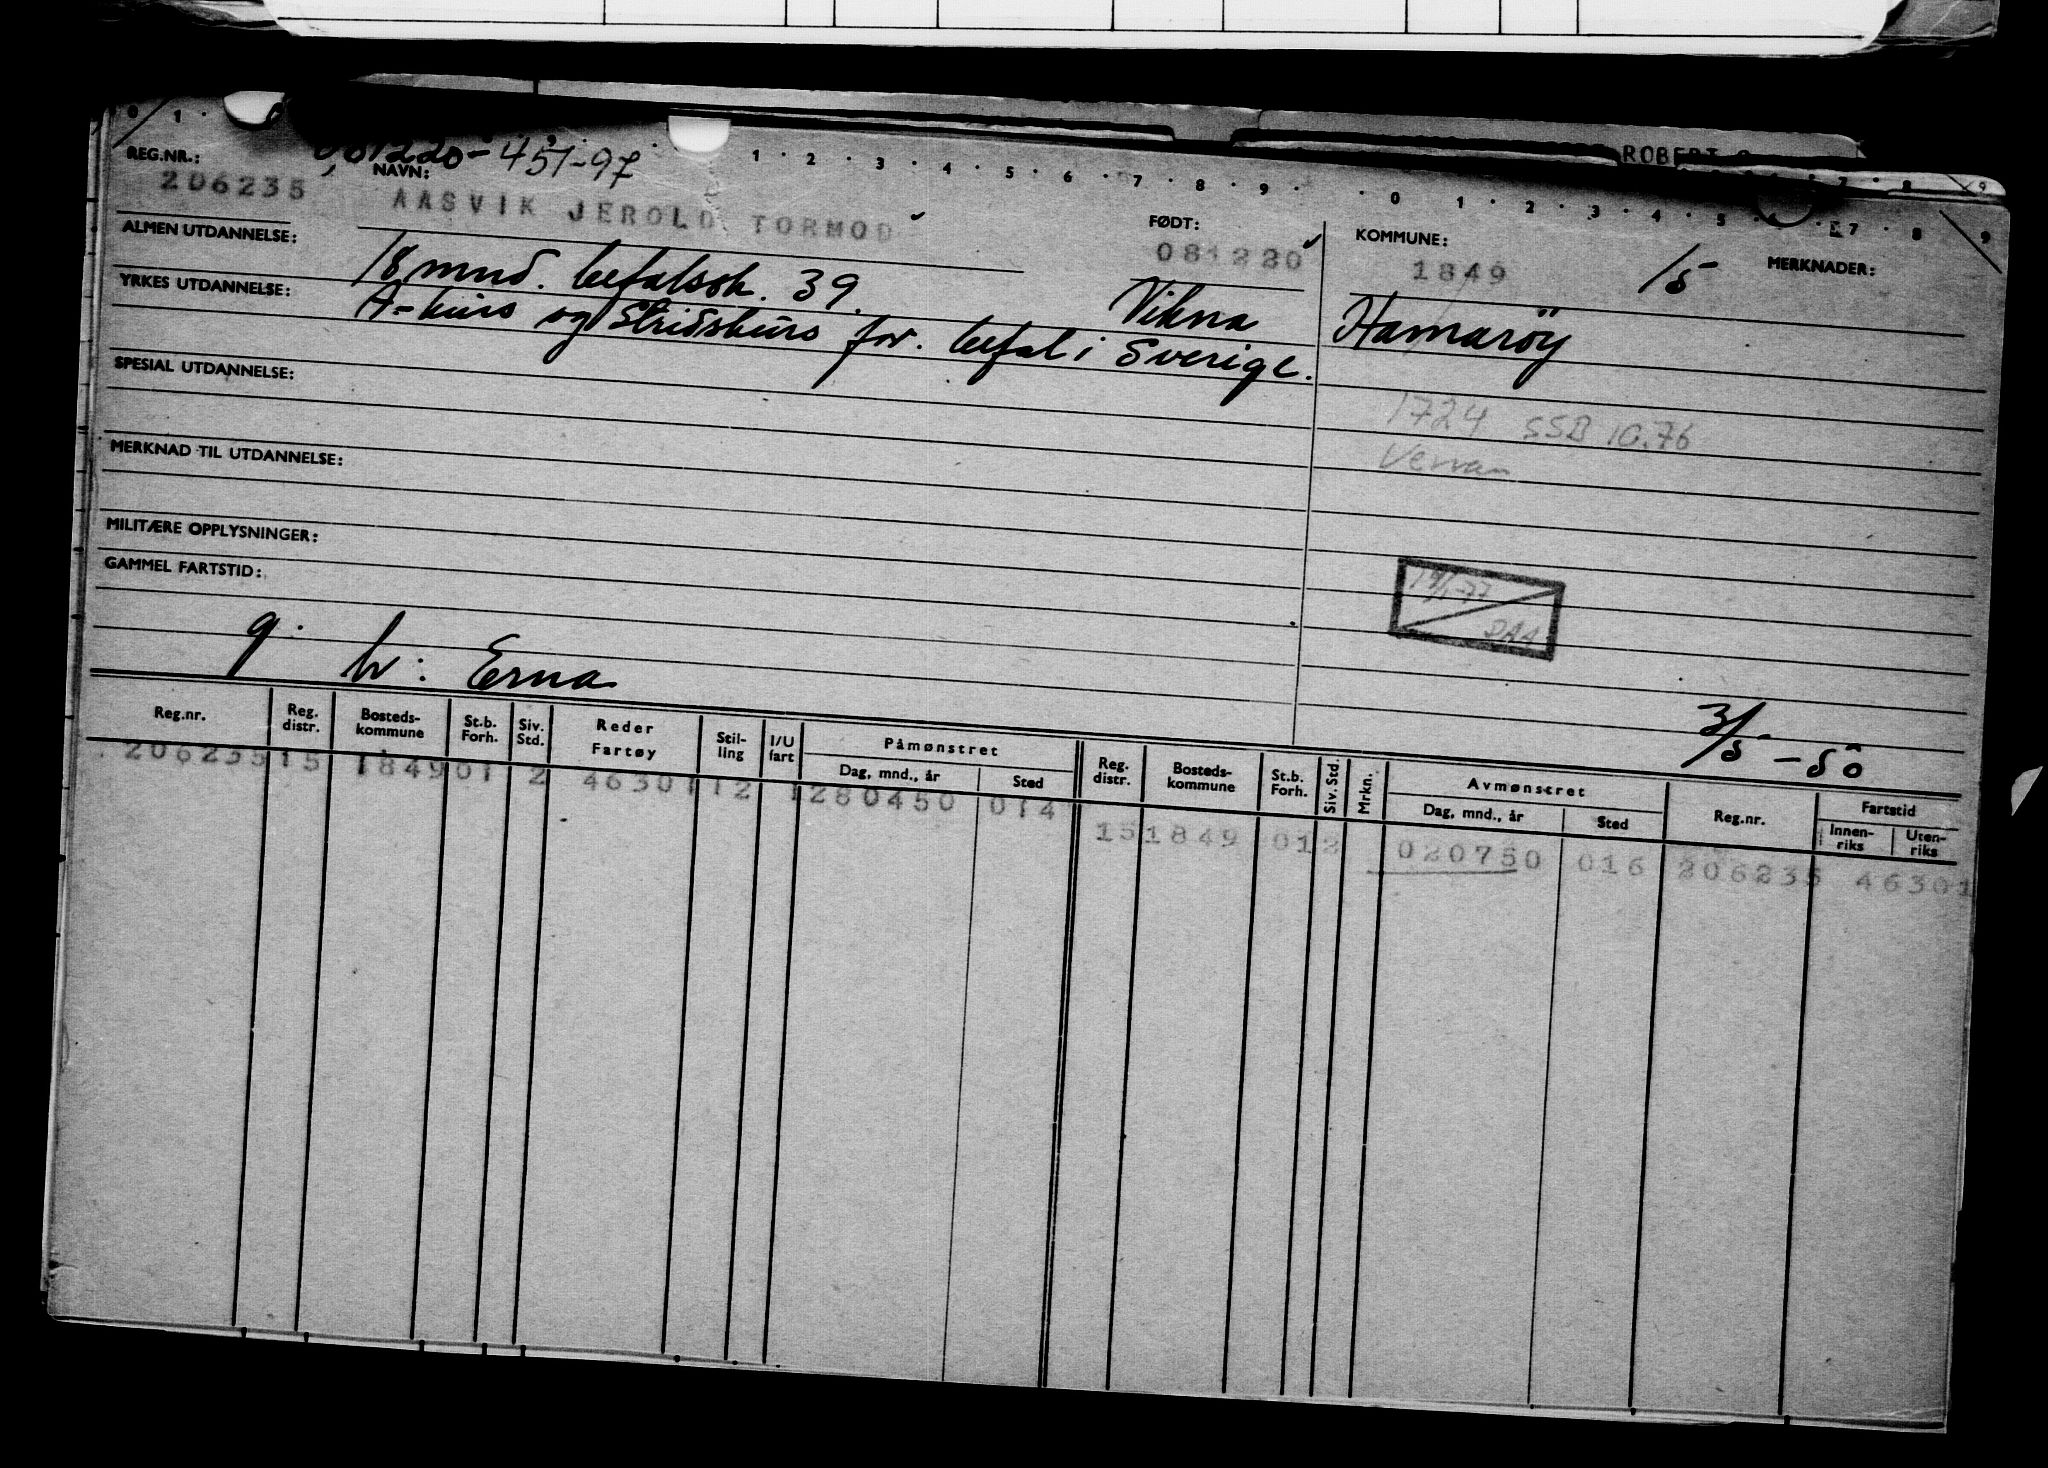 ROBERT
0 1 1 2 3 4 5 6 7 8 9 0 1 2 3 4 5 7 8 9
081220-45197
REG.NR.: 206235
NAVN: AASVIK JEROLD TORMOD
FØDT: 081220
KOMMUNE: 1849
15
MERKNADER:
ALMEN UTDANNELSE: 18 mnd. befalssk. 39.
Vikna
Hamarøy
YRKES UTDANNELSE: A-kurs og Stridskurs for befal i Sverige.
SPESIAL UTDANNELSE:
1724 SSB 10.76
Verran
MERKNAD TIL UTDANNELSE:
MILITÆRE OPPLYSNINGER:
GAMMEL FARTSTID:
g. h: Erna
3/5-50
Reg.nr. Reg. distr. Bosteds-kommune St.b. Forh. Siv. Std. Reder Fartøy Stil-ling I/U fart Påmønstret Dag, mnd., år Sted Reg. distr. Bosteds-kommune St.b. Forh. Siv. Std. Mrkn. Avmønstret Dag, mnd., år Sted Reg.nr. Fartstid Innen-riks Uten-riks
206235 15 1849 01 2 46301 12 1 280450 014
15 1849 01 2 020750 016 206235 46301